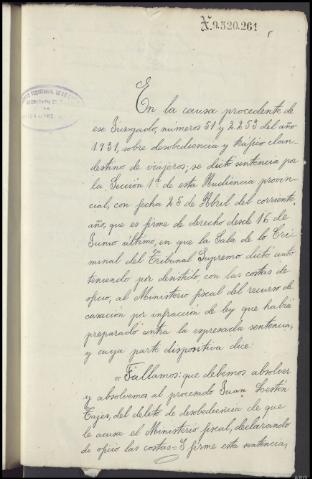 X.9.320.261
En la causa procedente de
ese Juzgado, números 51 y 2253 del año
1931, sobre desobediencia y tráfico clan-
destino de viajeros; se dictó sentencia por
la Sección 1ª de esta Audiencia provin-
cial, con fecha 25 de Abril del corriente
año, que es firme de derecho desde 16 de
Junio último, en que la Sala de lo Cri-
minal del Tribunal Supremo dictó auto
teniendo por desistido con las costas de
oficio, al Ministerio fiscal del recurso de
casación por infracción de ley que había
preparado contra la expresada sentencia,
y cuya parte dispositiva dice:
"Fallamos: que debemos absolver
y absolvemos al procesado Juan
Tajes, del delito de desobediencia de que
le acusa el Ministerio fiscal, declarando
de oficio las costas=Y firme esta sentencia,